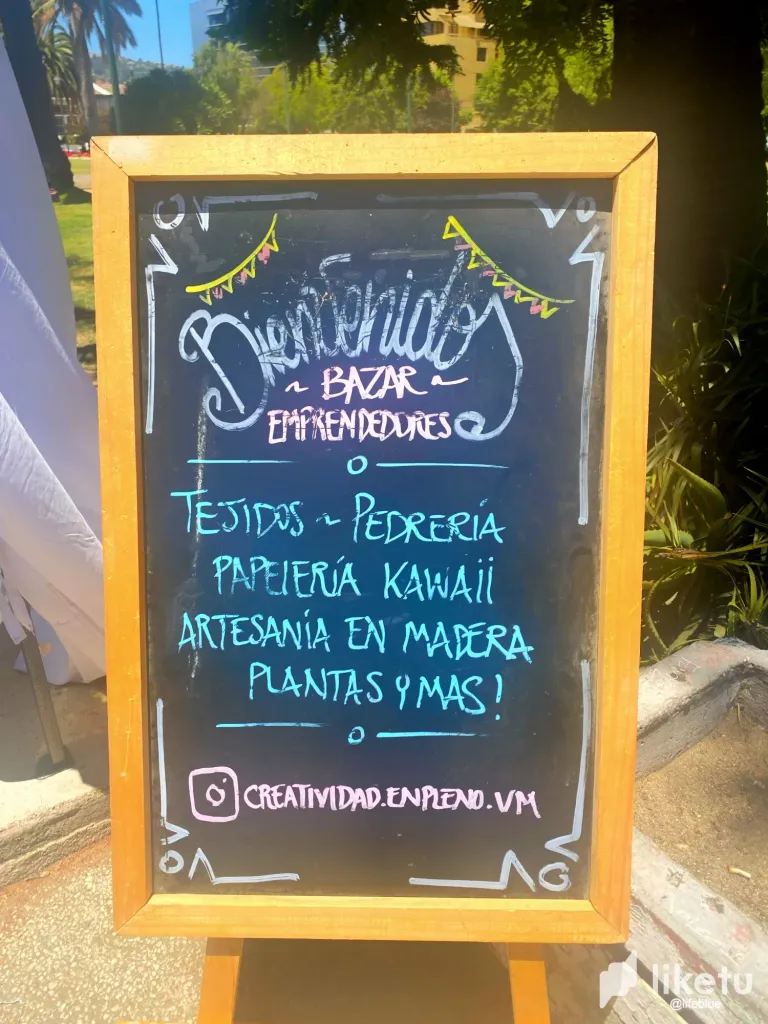 Bienvenidos
~ BAZAR ~
EMPRENDEDORES
TEJIDOS ~ PEDRERÍA
PAPELERÍA KAWAII
ARTESANÍA EN MADERA
PLANTAS Y MAS!
CREATIVIDAD.ENPLENO.VM
liketu
@lifeblue